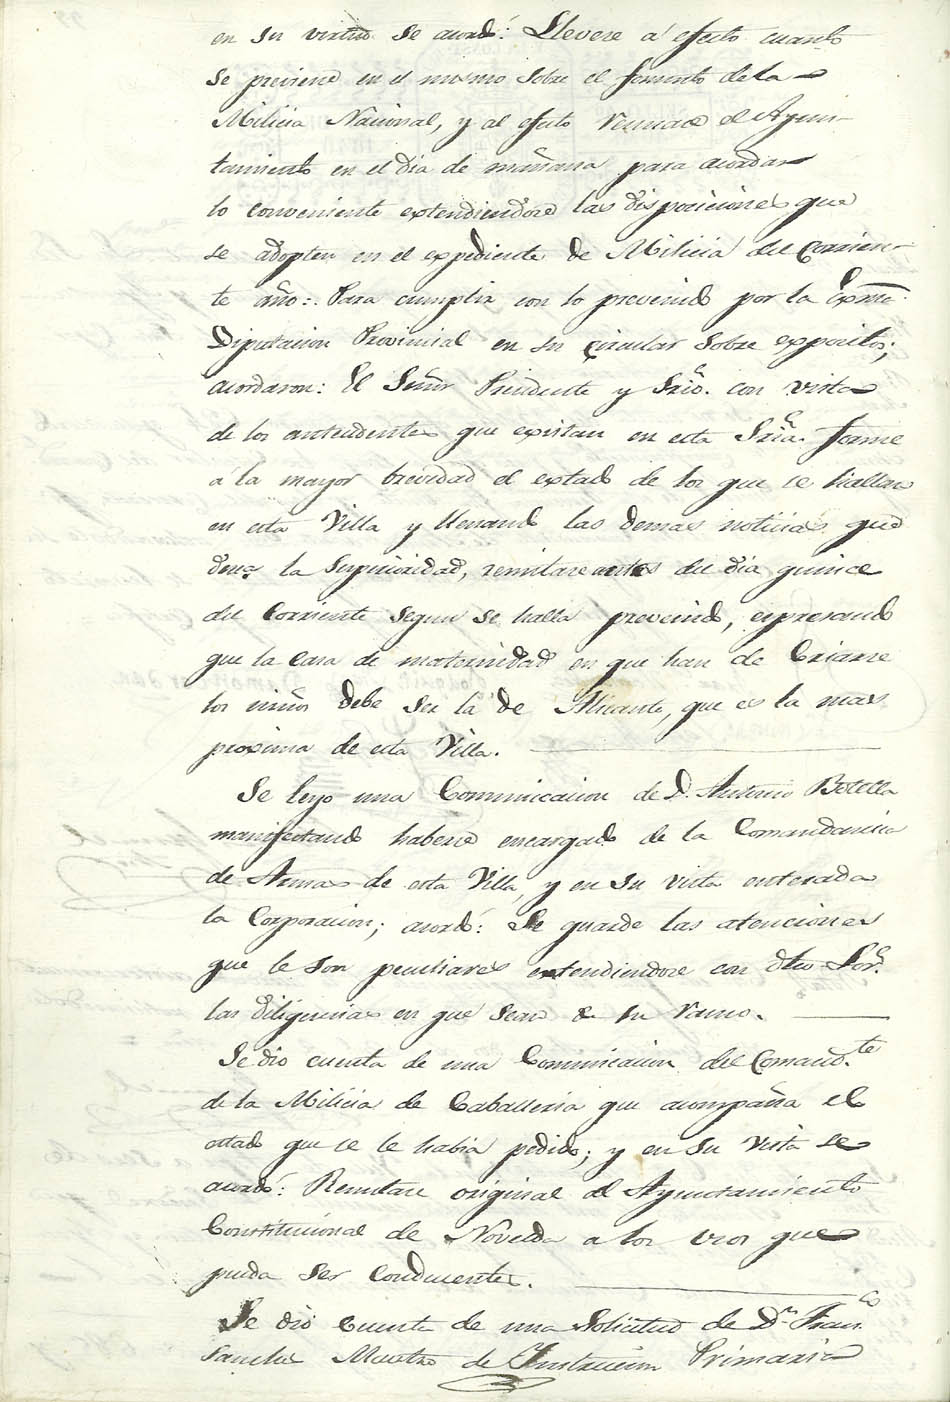 en su virtud se acordó: Llevese á efecto cuanto
se previene en el mismo sobre el fomento de la
Milicia Nacional, y al efecto reunase el Ayun-
tamiento en el dia de mañana para acordar
lo conveniente extendiendose las disposiciones que
se adopten en el expediente de Milicia del corrien-
te año: Para cumplir con lo prevenido por la Exma.
Diputacion Provincial en su circular sobre expositos;
acordaron: El Señor Presidente y Srio. con vista
de los antecedentes que existan en esta Sria. forme
á la mayor brevedad el estado de los que se hallan
en esta Villa y llenando las demas noticias que
desea la Superioridad, remitase antes del dia quince
del corriente segun se halla prevenido, expresando
que la casa de maternidad en que han de criarse
los niños debe ser la de Alicante, que es la mas
proxima de esta Villa.
Se leyo una Comunicacion de D. Antonio Botella
manifestando haberse encargado de la Comandancia
de Armas de esta Villa, y en su vista enterada
la Corporacion; acordó: Se guarde las atenciones
que le son peculiares entendiendose con dho Sor.
las diligencias en que sean de su ramo.
Se dio cuenta de una Comunicacion del Comandte.
de la Milicia de Caballeria que acompaña el
estado que se le habia pedido; y en su vista se
acordó: Remitase original al Ayuntamiento
Constitucional de Novelda a los usos que
pueda ser conducente.
Se dió cuenta de una Solicitud de Dn. Franco
Sanchez Maestro de Instruccion Primaria